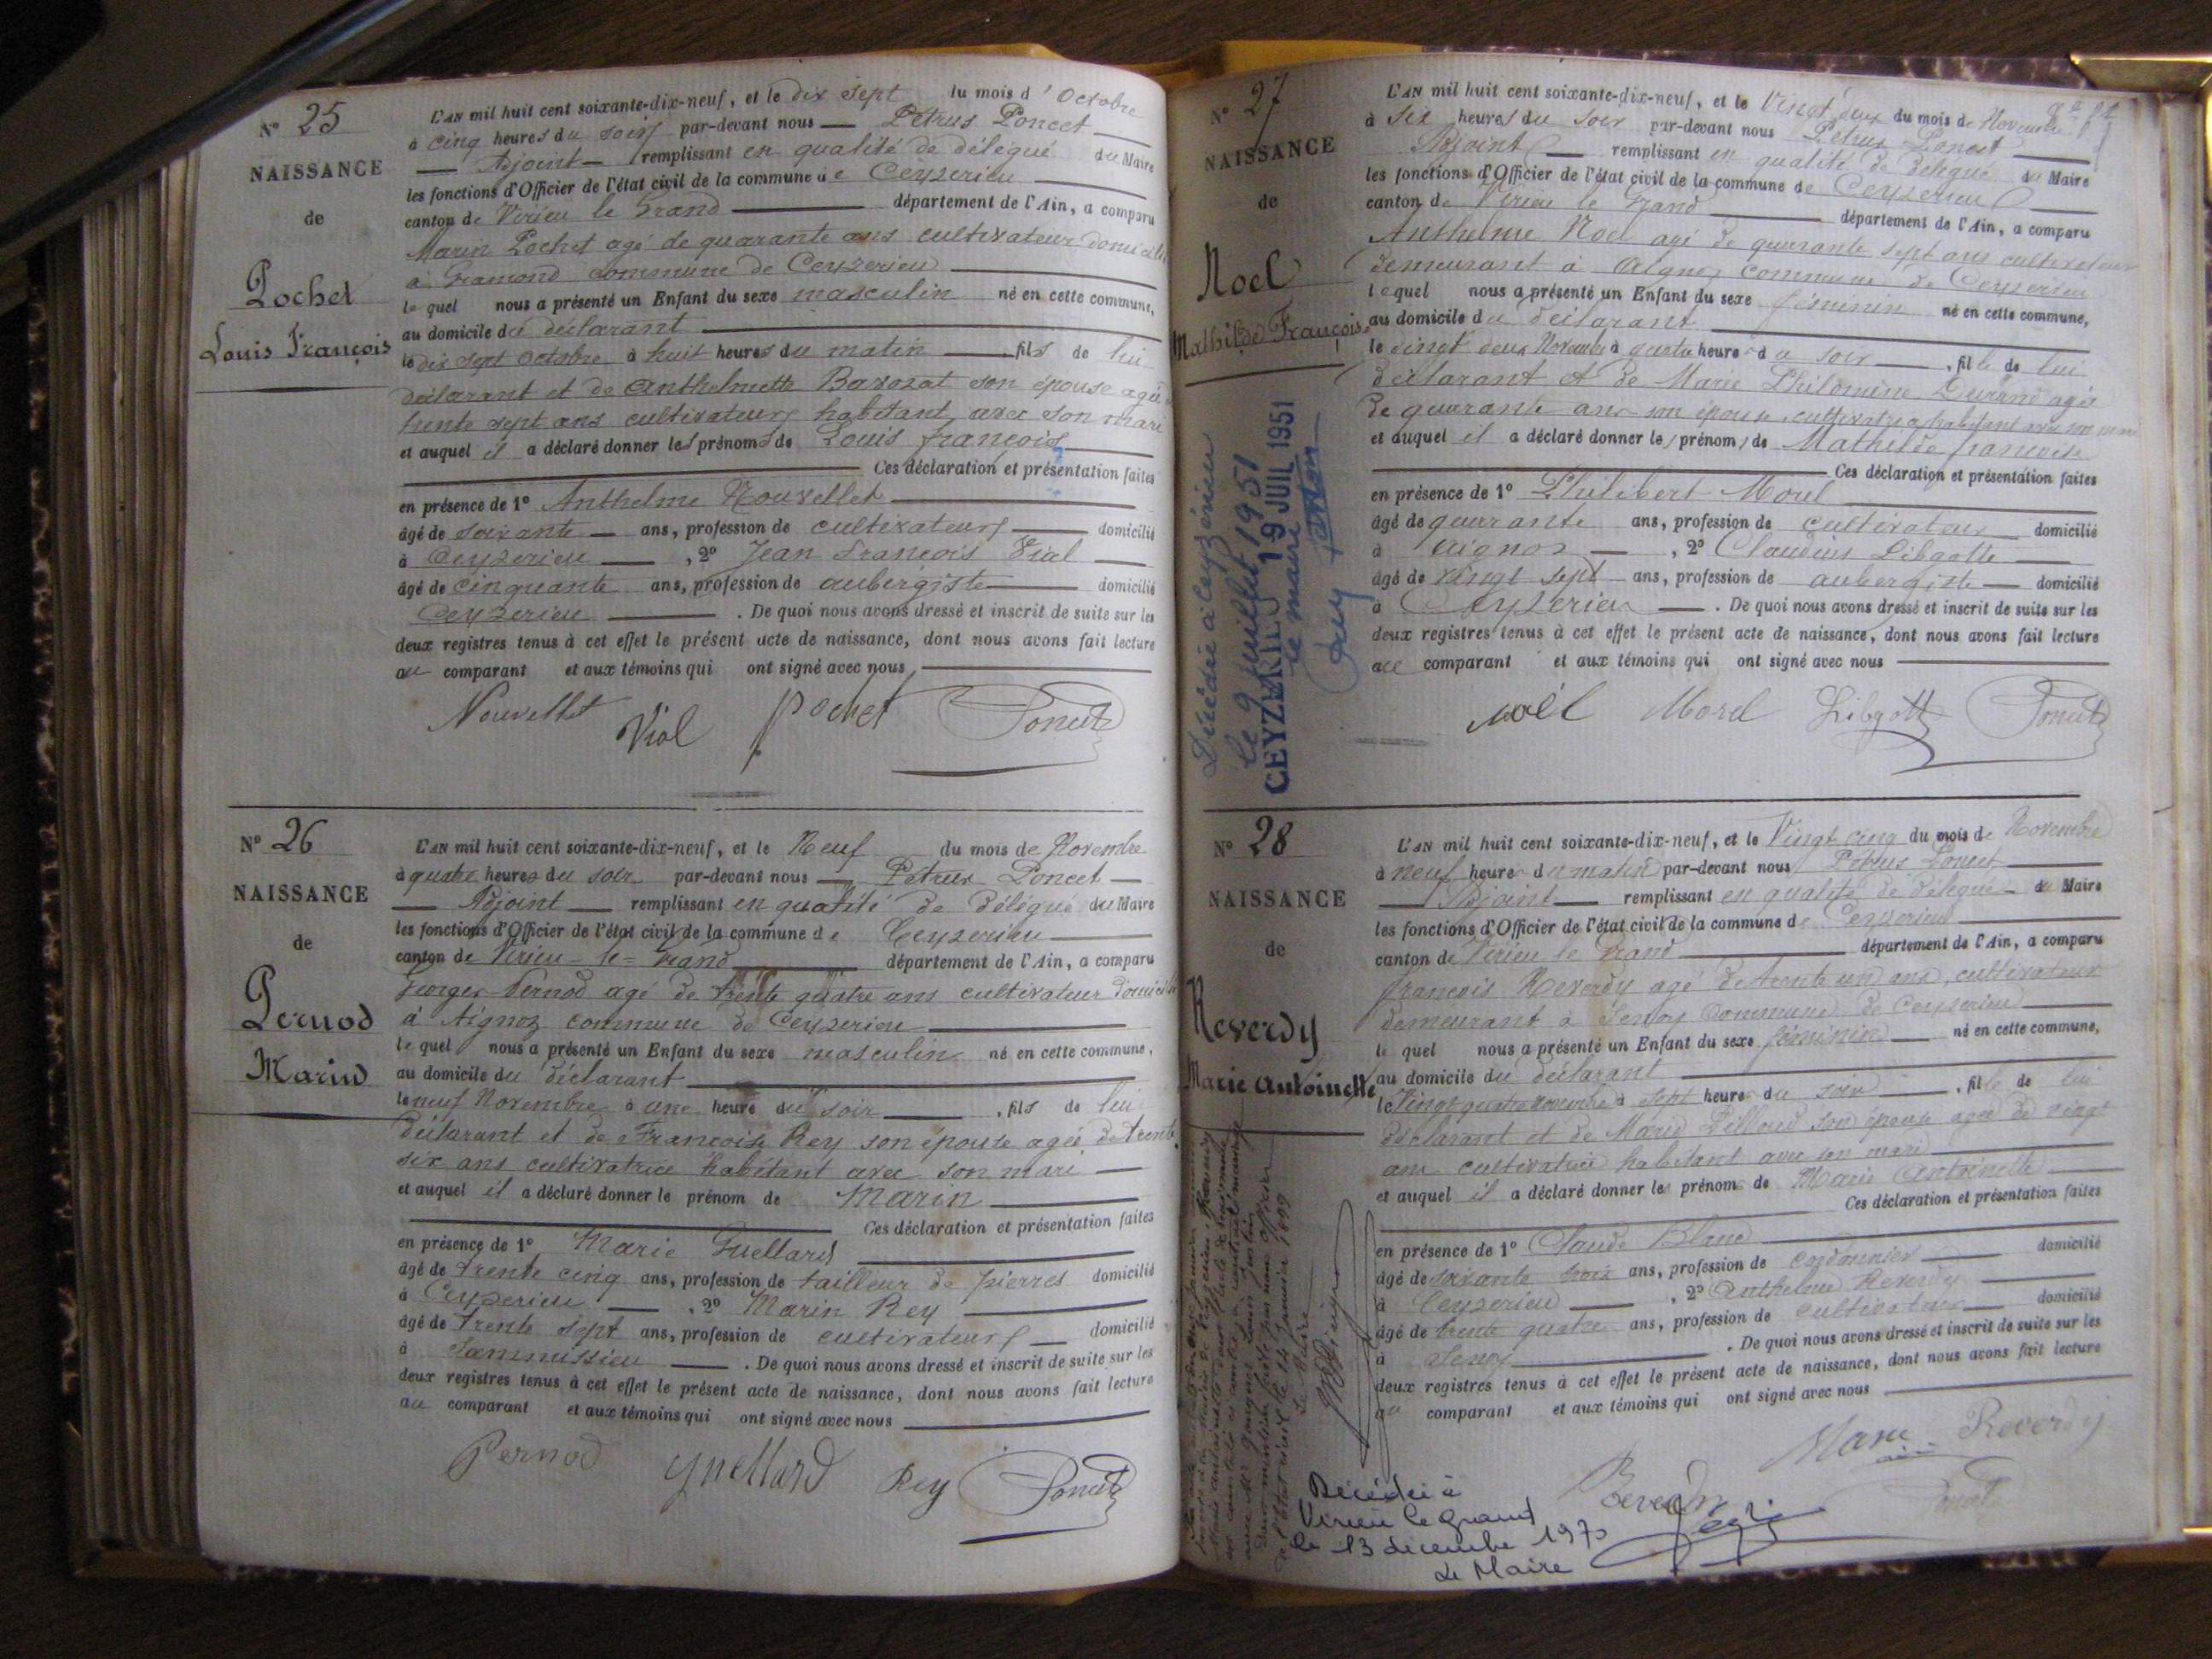 N° 25
NAISSANCE
de
Pochet
Louis François
L'AN mil huit cent soixante-dix-neuf, et le dix sept du mois d'Octobre
à cinq heures du soir par-devant nous Pétrus Poncet
Adjoint remplissant en qualité de délégué du Maire
les fonctions d'Officier de l'état civil de la commune de Ceyzerieu
canton de Virieu le Grand département de l'Ain, a comparu
Marin Pochet agé de quarante ans cultivateur domicilié
à Gramond commune de Ceyzerieu
le quel nous a présenté un Enfant du sexe masculin né en cette commune,
au domicile du déclarant
le dix sept Octobre à huit heures du matin fils de lui
déclarant et de Anthelmette Bavozat son épouse agée
trente sept ans cultivateur habitant avec son mari
et auquel il a déclaré donner les prénoms de Louis françois
Ces déclaration et présentation faites
en présence de 1° Anthelme Nouvellet
âgé de soixante ans, profession de cultivateur domicilié
à Ceyzerieu , 2° Jean François Vial
âgé de cinquante ans, profession de aubergiste domicilié
Ceyzerieu . De quoi nous avons dressé et inscrit de suite sur les
deux registres tenus à cet effet le présent acte de naissance, dont nous avons fait lecture
au comparant et aux témoins qui ont signé avec nous
Nouvellet Vial Pochet Poncet
N° 26
NAISSANCE
de
Pernod
Marin
L'AN mil huit cent soixante-dix-neuf, et le Neuf du mois de Novembre
à quatre heures du soir par-devant nous Pétrus Poncet
Adjoint remplissant en qualité de délégué du Maire
les fonctions d'Officier de l'état civil de la commune de Ceyzerieu
canton de Virieu-le-Grand département de l'Ain, a comparu
Georges Pernod agé de trente quatre ans cultivateur domicilié
à Aignoz commune de Ceyzerieu
le quel nous a présenté un Enfant du sexe masculin né en cette commune,
au domicile du déclarant
le neuf Novembre à une heure du soir , fils de lui
déclarant et de Françoise Rey son épouse agée de trente
six ans cultivatrice habitant avec son mari
et auquel il a déclaré donner le prénom de Marin
Ces déclaration et présentation faites
en présence de 1° Marie Guellard
âgé de trente cinq ans, profession de tailleur de pierres domicilié
à Ceyzerieu , 2° Marin Rey
âgé de trente sept ans, profession de cultivateur domicilié
à Sammissieu . De quoi nous avons dressé et inscrit de suite sur les
deux registres tenus à cet effet le présent acte de naissance, dont nous avons fait lecture
au comparant et aux témoins qui ont signé avec nous
Pernod Guellard Rey Poncet
N° 27
NAISSANCE
de
Noel
Mathilde Françoise
Décédée à Ceyzérieu
le 9 juillet 1951
CEYZERIEU 19 JUIL 1951
le maire
L'AN mil huit cent soixante-dix-neuf, et le Vingt deux du mois de Novembre
à Six heures du soir par-devant nous Pétrus Poncet
Adjoint remplissant en qualité de délégué du Maire
les fonctions d'Officier de l'état civil de la commune de Ceyzerieu
canton de Virieu le Grand département de l'Ain, a comparu
Anthelme Noel agé de quarante sept ans cultivateur
demeurant à Aignoz commune de Ceyzerieu
lequel nous a présenté un Enfant du sexe féminin né en cette commune,
au domicile du déclarant
le vingt deux Novembre à quatre heures du soir , fille de lui
déclarant et de Marie Philomène Durand agée
de quarante ans son épouse cultivatrice habitant avec son mari
et auquel il a déclaré donner les prénoms de Mathilde françoise
Ces déclaration et présentation faites
en présence de 1° Philibert Morel
âgé de quarante ans, profession de cultivateur domicilié
à Aignoz , 2° Claudius Libgotte
âgé de vingt sept ans, profession de aubergiste domicilié
à Ceyzerieu . De quoi nous avons dressé et inscrit de suite sur les
deux registres tenus à cet effet le présent acte de naissance, dont nous avons fait lecture
au comparant et aux témoins qui ont signé avec nous
Noël Morel Libgott Poncet
N° 28
NAISSANCE
de
Reverdy
Marie Antoinette
L'AN mil huit cent soixante-dix-neuf, et le Vingt cinq du mois de Novembre
à neuf heures du matin par-devant nous Pétrus Poncet
Adjoint remplissant en qualité de délégué du Maire
les fonctions d'Officier de l'état civil de la commune de Ceyzerieu
canton de Virieu le Grand département de l'Ain, a comparu
françois Reverdy agé de trente un ans, cultivateur
demeurant à Senoy Commune de Ceyzerieu
le quel nous a présenté un Enfant du sexe féminin né en cette commune,
au domicile du déclarant
le Vingt quatre novembre à sept heures du soir , fille de lui
déclarant et de Marie Pilloud son épouse agée de vingt
ans cultivatrice habitant avec son mari
et auquel il a déclaré donner les prénoms de Marie Antoinette
Ces déclaration et présentation faites
en présence de 1° Claude Blanc
âgé de soixante trois ans, profession de cordonnier domicilié
à Ceyzerieu , 2° Anthelme Reverdy
âgé de trente quatre ans, profession de cultivateur domicilié
à Senoy . De quoi nous avons dressé et inscrit de suite sur les
deux registres tenus à cet effet le présent acte de naissance, dont nous avons fait lecture
au comparant et aux témoins qui ont signé avec nous
Reverdy
Poncet
Le Maire
Décédée à
Virieu le Grand
le 13 décembre 1970
Le Maire